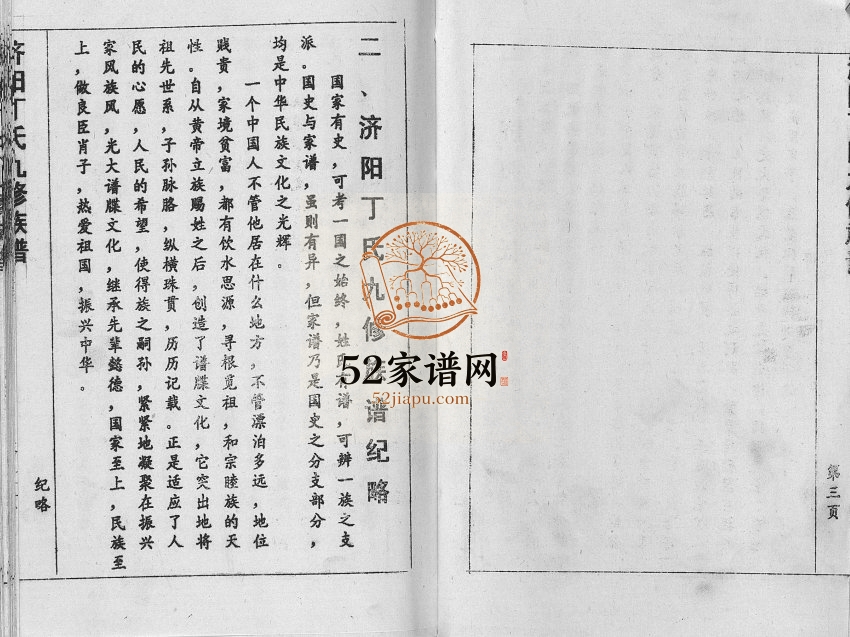 二、济阳丁氏九修族谱纪略
国家有史，可考一国之始终，姓氏有谱，可辨一族之支
派。国史与家谱，虽则有异，但家谱乃是国史之分支部分，
均是中华民族文化之光辉。
一个中国人不管他居在什么地方，不管漂泊多远，地位
贱贵，家境贫富，都有饮水思源，寻根觅祖，和宗睦族的天
性。自从黄帝立族赐姓之后，创造了谱牒文化，它突出地将
祖先世系，子孙脉胳，纵横珠贯，历历记载。正是适应了人
民的心愿，人民的希望，使得族之嗣孙，紧紧地凝聚在振兴
家风族风，光大谱牒文化，继承先辈懿德，国家至上，民族至
上，做良臣肖子，热爱祖国，振兴中华。
纪略
济阳丁氏九修族谱
第三页
52家谱网
52jiapu.com